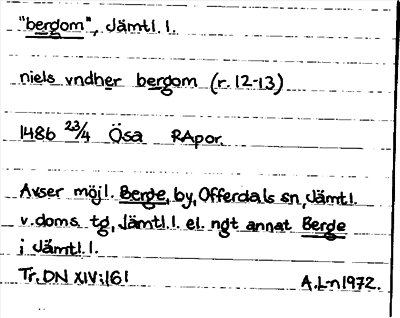 "bergom", Jämtl. l.
niels vndher bergom (r. 12-13)
1486 23/4 Ösa RApor.
Avser möjl. Berge, by, Offerdals sn, Jämtl.
v. doms tg, Jämtl. l. el. ngt annat Berge
i Jämtl. l.
Tr. DN XIV:161 A.L-n 1972.